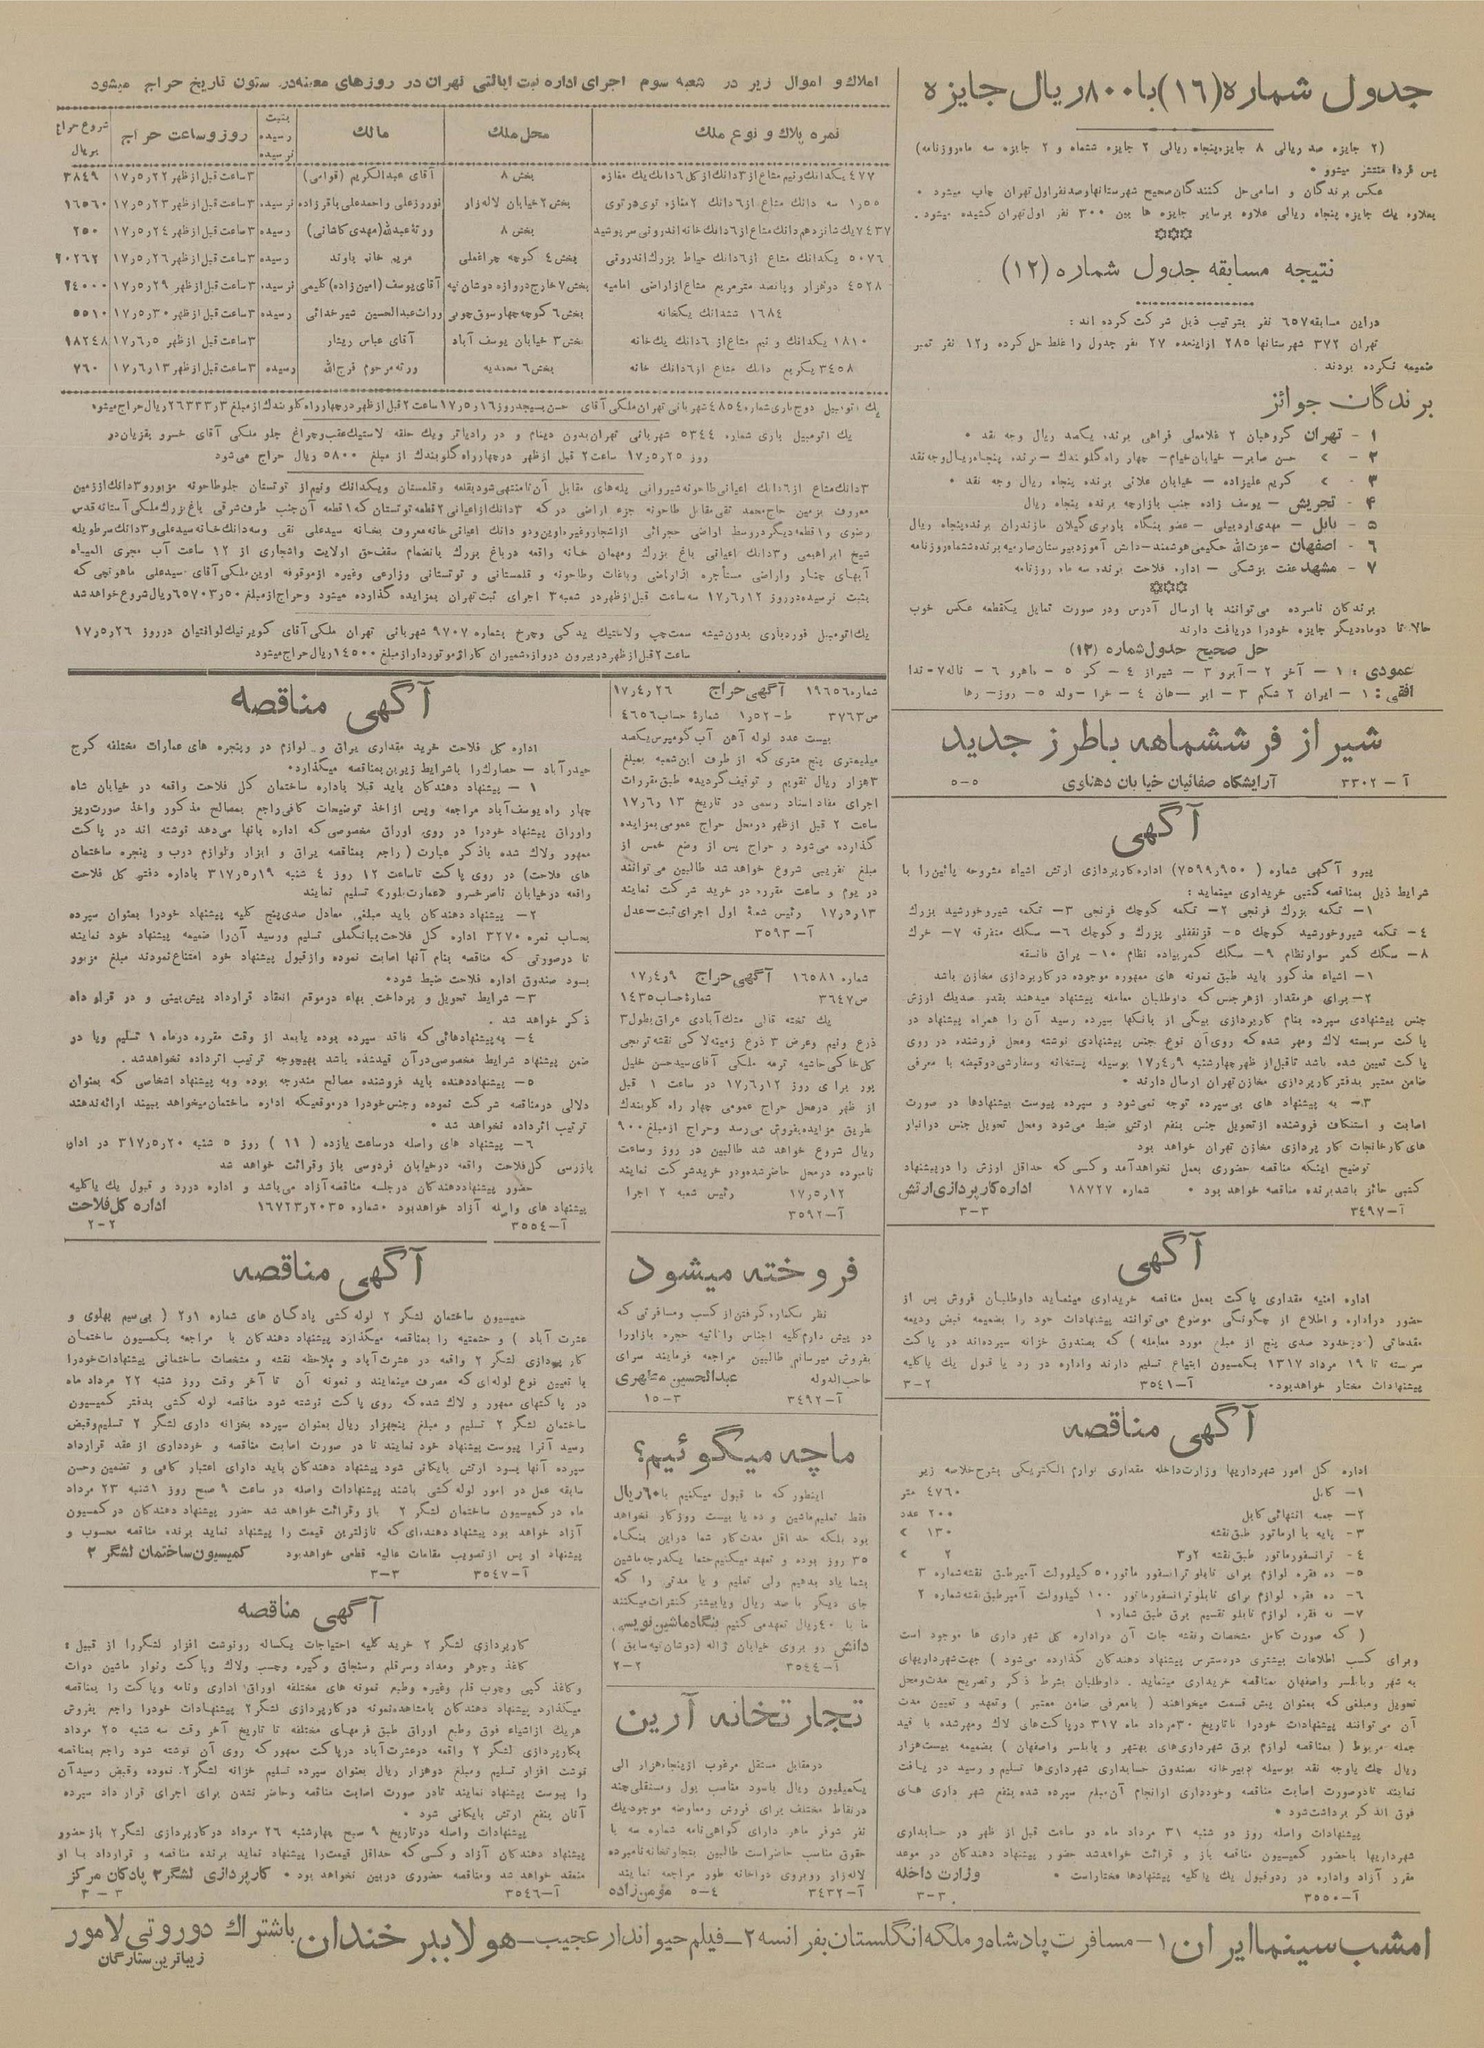 جدول شماره (۱۶) با ۸۰۰ ریال جایزه
(۲ جایزه صد ریالی ۸ جایزه پنجاه ریالی ۲ جایزه ششماه و ۲ جایزه سه ماه روزنامه)
پس فردا منتشر میشود
عکس برندگان و اسامی حل کنندگان صحیح شهرستانها و صد نفر اول تهران چاپ میشود
بعلاوه یك جایزه پنجاه ریالی علاوه بر سایر جایزه ها بین ۳۰۰ نفر اول تهران کشیده میشود.
نتیجه مسابقه جدول شماره (۱۲)
دراین مسابقه ۶۵۷ نفر بترتیب ذیل شرکت کرده اند:
تهران ۳۷۲ شهرستانها ۲۸۵ ازاینعده ۲۷ نفر جدول را غلط حل کرده و ۱۲ نفر تمبر
ضمیمه نکرده بودند.
برندگان جوائز
۱ - تهران گروهبان ۲ غلامعلی فراهی برنده یکصد ریال وجه نقد
۲ - » حسن صابر - خیابان خیام - چهار راه گلوبندك - برنده پنجاه ریال وجه نقد
۳ - » کریم علیزاده - خیابان علائی برنده پنجاه ریال وجه نقد
۴ - تجریش - یوسف زاده جنب بازارچه برنده پنجاه ریال
۵ - بابل - مهدی اردبیلی - عضو بنگاه باربری گیلان مازندران برنده پنجاه ریال
۶ - اصفهان - عزت الله حکیمی هوشمند - دانش آموز دبیرستان صارمیه برنده ششماه روزنامه
۷ - مشهد عفت پزشکی - اداره فلاحت برنده سه ماه روزنامه
برندگان نامبرده می توانند با ارسال آدرس ودر صورت تمایل یکقطعه عکس خوب
حالا تا دوماه دیگر جایزه خودرا دریافت دارند
حل صحیح جدول شماره (۱۲)
عمودی: ۱ - آخر ۲ - آبرو ۳ - شیراز ۴ - کر ۵ - ماهرو ۶ - ناله ۷ - ندا
افقی: ۱ - ایران ۲ شکم ۳ - ابر - هان ۴ - خرا - ولد ۵ - روز - رها
شیراز فرششماهه باطرز جدید
آ - ۳۳۰۲ آرایشگاه صفائیان خیابان دهنادی ۵-۵
آگهی
پیرو آگهی شماره (۷۵۹۹ر۹۵۰) اداره کارپردازی ارتش اشیاء مشروحه پائین را با
شرایط ذیل بمناقصه کتبی خریداری مینماید:
۱- تکمه بزرك فرنجی ۲- تکمه کوچك فرنجی ۳- تکمه شیروخورشید بزرك
۴- تکمه شیروخورشید کوچك ۵- قزنقفلی بزرك و کوچك ۶- سگك متفرقه ۷- خرك
۸- سگك کمر سوارنظام ۹- سگك کمر پیاده نظام ۱۰- یراق فانسقه
۱- اشیاء مذکور باید طبق نمونه های ممهوره موجوده در کارپردازی مخازن باشد
۲- برای هر مقدار از هر جنس که داوطلبان معامله پیشنهاد میدهند بقدر صدیك ارزش
جنس پیشنهادی سپرده بنام کارپردازی بیکی از بانکها سپرده رسید آن را همراه پیشنهاد در
پاکت سربسته لاك ومهر شده که روی آن نوع جنس پیشنهادی نوشته ومحل فروشنده در روی
پاکت تعیین شده باشد تاقبل از ظهر چهارشنبه ۱۷ر۴ر۹ بوسیله پستخانه وسفارشی دوقبضه با معرفی
ضامن معتبر بدفتر کارپردازی مخازن تهران ارسال دارند
۳- به پیشنهاد های بی سپرده توجه نمی شود و سپرده پیوست پیشنهادها در صورت
اصابت و استنکاف فروشنده از تحویل جنس بنفع ارتش ضبط می شود ومحل تحویل جنس درانبار
های کارخانجات کار پردازی مخازن تهران خواهد بود
توضیح اینکه مناقصه حضوری بعمل نخواهد آمد و کسی که حداقل ارزش را در پیشنهاد
کتبی حائز باشد برنده مناقصه خواهد بود شماره ۱۸۷۲۷ اداره کارپردازی ارتش
آ-۳۴۹۷ ۳-۳
آگهی
اداره امنیه مقداری پاکت بعمل مناقصه خریداری مینماید داوطلبان فروش پس از
حضور دراداره و اطلاع از چگونگی موضوع می توانند پیشنهادات خود را بضمیمه قبض ودیعه
مقدماتی (درحدود صدی پنج از مبلغ مورد معامله) که بصندوق خزانه سپرده اند در پاکت
سربسته تا ۱۹ مرداد ۱۳۱۷ بکمسیون ابتیاع تسلیم دارند واداره در رد یا قبول یك یا کلیه
پیشنهادات مختار خواهد بود. آ-۳۵۴۱ ۳-۲
آگهی مناقصه
اداره کل امور شهرداریها وزارت داخله مقداری لوازم الکتریکی بشرح خلاصه زیر
۱- کابل ۴۷۶۰ متر
۲- جعبه انتهائی کابل ۲۰۰ عدد
۳- پایه با ارماتور طبق نقشه ۱۳۰ »
۴- ترانسفورماتور طبق نقشه ۲و۳ ۲ »
۵- ده فقره لوازم برای تابلو ترانسفورماتور ۵۰ کیلوولت آمپر طبق نقشه شماره ۳
۶- ده فقره لوازم برای تابلو ترانسفورماتور ۱۰۰ کیلوولت آمپر طبق نقشه شماره ۲
۷- نه فقره لوازم تابلو تقسیم برق طبق شماره ۱
(که صورت کامل مشخصات ونقشه جات آن دراداره کل شهرداری ها موجود است
وبرای کسب اطلاعات بیشتری در دسترس پیشنهاد دهندگان گذارده می شود) جهت شهرداریهای
به شهر وبابلسر واصفهان بمناقصه خریداری مینماید. داوطلبان بشرط ذکر و تصریح مدت ومحل
تحویل ومبلغی که بعنوان پیش قسمت میخواهند (با معرفی ضامن معتبر) وتعهد و تعیین مدت
آن می توانند پیشنهادات خودرا تا تاریخ ۳۰ مرداد ماه ۳۱۷ در پاکت های لاك ومهر شده با قید
جمله مربوط (بمناقصه لوازم برق شهرداری های بهشهر و بابلسر واصفهان) بضمیمه بیست هزار
ریال چك یا وجه نقد بوسیله دبیرخانه بصندوق حسابداری شهرداری ها تسلیم و رسید دریافت
نمایند تا در صورت اصابت مناقصه وخودداری از انجام آن مبلغ سپرده شده بنفع شهرداری های
فوق الذکر برداشت شود
پیشنهادات واصله روز دو شنبه ۳۱ مرداد ماه دو ساعت قبل از ظهر در حسابداری
شهرداریها با حضور کمیسیون مناقصه باز و قرائت خواهد شد حضور پیشنهاد دهندگان در موعد
مقرر آزاد واداره در رد و قبول یك یا کلیه پیشنهادها مختار است وزارت داخله
آ-۳۵۵۰ ۳-۳
املاك و اموال زیر در شعبه سوم اجرای اداره ثبت ایالتی تهران در روزهای معینه در ستون تاریخ حراج میشود
نمره پلاك و نوع ملك | محل ملك | مالك | بثبت رسیده نرسیده | روز و ساعت حراج | شروع حراج بریال
۴۷۷ یکدانك ونیم مشاع از ۳ دانك از کل ۶ دانك یك مغازه | بخش ۸ | آقای عبدالکریم (قوامی) | | ۳ ساعت قبل از ظهر ۲۲ر۵ر۱۷ | ۳۸۴۹
۱ر۵۵ سه دانك مشاع از ۶ دانك ۲ مغازه توی درتوی | بخش ۲ خیابان لاله زار | نوروز علی و احمد علی باقر زاده | نرسیده | ۳ ساعت قبل از ظهر ۲۳ر۵ر۱۷ | ۱۶۵۶۰
۷۴۳۷ یك شانزدهم دانك مشاع از ۶ دانك خانه اندرونی سرپوشید | بخش ۸ | ورثه عبدالله (مهدی کاشانی) | رسیده | ۳ ساعت قبل از ظهر ۲۴ر۵ر۱۷ | ۲۵۰
۵۰۷۶ یکدانك مشاع از ۶ دانك حیاط بزرك اندرونی | بخش ۴ کوچه چراغعلی | مریم خانم باوند | رسیده | ۳ ساعت قبل از ظهر ۲۶ر۵ر۱۷ | ۲۰۲۶۲
۴۵۲۸ دوهزار و پانصد متر مربع مشاع از اراضی امامیه | بخش ۷ خارج دروازه دوشان تپه | آقای یوسف (امین زاده) کلیمی | نرسیده | ۳ ساعت قبل از ظهر ۲۹ر۵ر۱۷ | ۲۴۰۰۰
۱۶۸۴ ششدانك یکخانه | بخش ۶ کوچه چهارسوق چوبی | وراث عبدالحسین شیرخدائی | رسیده | ۳ ساعت قبل از ظهر ۳۰ر۵ر۱۷ | ۵۵۱۰
۱۸۱۰ یکدانك و نیم مشاع از ۶ دانك یك خانه | بخش ۳ خیابان یوسف آباد | آقای عباس ریشار | | ۳ ساعت قبل از ظهر ۵ر۶ر۱۷ | ۱۸۲۴۸
۳۴۵۸ یکربع دانك مشاع از ۶ دانك خانه | بخش ۶ محمدیه | ورثه مرحوم فرج الله | رسیده | ۳ ساعت قبل از ظهر ۱۳ر۶ر۱۷ | ۷۶۰
یك اتومبیل دوج باری شماره ۴۸۵۴ شهربانی تهران ملکی آقای حسن بسیجد روز ۱۶ر۵ر۱۷ ساعت ۲ قبل از ظهر در چهار راه گلوبندك از مبلغ ۲۶۳۳۳ر۳ ریال حراج میشود
یك اتومبیل باری شماره ۵۳۴۴ شهربانی تهران بدون دینام و در رادیاتر ویك حلقه لاستیك عقب وچراغ جلو ملکی آقای خسرو بقزیان در
روز ۲۵ر۵ر۱۷ ساعت ۲ قبل از ظهر در چهار راه گلوبندك از مبلغ ۵۸۰۰ ریال حراج می شود
۳ دانك مشاع از ۶ دانك اعیانی طاحونه شیروانی پله های مقابل آن تا منتهی شود بقلعه وقلمستان ویکدانك ونیم از توتستان جلو طاحونه مزبور و ۳ دانك از زمین
معروف بزمین حاج محمد تقی مقابل طاحونه جزء اراضی درکه ۳ دانك از اعیانی ۲ قطعه توتستان که ۱ قطعه آن جنب طرف شرقی باغ بزرك ملکی آستانه قدس
رضوی و ۱ قطعه دیگر در وسط اراضی حجرائی از اشجار وغیره اوین ودو دانك اعیانی خانه معروف بخانه سیدعلی نقی وسه دانك خانه سیدعلی و ۳ دانك سرطویله
شیخ ابراهیمی و ۳ دانك اعیانی باغ بزرك ومهمان خانه واقعه درباغ بزرك بانضمام سقف حق اولایت واشجاری از ۱۲ ساعت آب مجری المیاه
آبهای چنار واراضی مستأجره از اراضی وباغات وطاحونه و قلمستانی و توتستانی وزارعی وغیره از موقوفه اوین ملکی آقای سیدعلی ماهوتچی که
بثبت نرسیده در روز ۱۲ر۶ر۱۷ سه ساعت قبل از ظهر در شعبه ۳ اجرای ثبت تهران بمزایده گذارده میشود وحراج از مبلغ ۶۵۷۰۳ر۵۰ ریال شروع خواهد شد
یك اتومبیل فورد باری بدون شیشه سمت چپ ولاستیك یدکی وچرخ بشماره ۹۷۰۷ شهربانی تهران ملکی آقای کوبرنیك لوافتیان در روز ۲۶ر۵ر۱۷
ساعت ۲ قبل از ظهر در بیرون دروازه شمیران کاراژ موتوردار از مبلغ ۱۴۵۰۰ ریال حراج میشود
شماره ۱۹۶۵۶ آگهی حراج ۲۶ر۴ر۱۷
ص ۳۷۶۳ ط-۱ر۵۲ شمارهٔ حساب ۴۶۵۶
بیست عدد لوله آهن آب کومپرس یکصد
میلیمتری پنج متری که از طرف این شعبه بمبلغ
۳ هزار ریال تقویم و توقیف گردیده طبق مقررات
اجرای مفاد اسناد رسمی در تاریخ ۱۳ر۶ر۱۷
ساعت ۲ قبل از ظهر در محل حراج عمومی بمزایده
گذارده می شود و حراج پس از وضع خمس از
مبلغ تقریبی شروع خواهد شد طالبین می توانند
در یوم و ساعت مقرره در خرید شرکت نمایند
۱۳ر۵ر۱۷ رئیس شعبهٔ اول اجرای ثبت-عدل
آ-۳۵۹۳
شماره ۱۶۵۸۱ آگهی حراج ۹ر۴ر۱۷
ص ۳۶۴۷ شمارهٔ حساب ۱۴۳۵
یك تخته قالی مشك آبادی عراق بطول ۳
ذرع ونیم وعرض ۳ ذرع زمینه لاکی نقشه ترنجی
گل خاکی حاشیه ترمه ملکی آقای سید حسن خلیل
پور برای روز ۱۲ر۶ر۱۷ در ساعت ۱ قبل
از ظهر در محل حراج عمومی چهار راه گلوبندك
طریق مزایده بفروش می رسد وحراج از مبلغ ۹۰۰
ریال شروع خواهد شد طالبین در روز وساعت
نامبرده درمحل حاضر شده ودر خرید شرکت نمایند
۱۲ر۵ر۱۷ رئیس شعبه ۲ اجرا
آ-۳۵۹۲
فروخته میشود
نظر بکناره گرفتن از کسب ومسافرتی که
در پیش دارم کلیه اجناس واثاثیه حجره بازار را
بفروش میرسانم طالبین مراجعه فرمایند سرای
حاجب الدوله عبدالحسین مظهری
آ-۳۴۹۲ ۱۵-۳
ما چه میگوئیم؟
اینطور که ما قبول میکنیم با ۶۰ ریال
فقط تعلیم ماشین و ده یا بیست روز کار نخواهد
بود بلکه حد اقل مدت کار شما دراین بنگاه
۳۵ روز بوده و تعهد میکنیم حتما یکدرجه ماشین
بشما یاد بدهیم ولی تعلیم و یا مدتی را که
جای دیگر با صد ریال ویا بیشتر کنترات میکنند
ما با ۴۰ ریال تعهد می کنیم بنگاه ماشین نویسی
دانش رو بروی خیابان ژاله (دوشان تپه سابق)
آ-۳۵۴۴ ۲-۲
تجارتخانه آرین
درمقابل مستقل مرغوب از پنجاه هزار الی
یکمیلیون ریال باسود مناسب پول ومستقلی چند
درنقاط مختلف برای فروش ومعاوضه موجود یك
نفر شوفر ماهر دارای گواهی نامه شماره سه با
حقوق مناسب حاضر است طالبین بتجارتخانه نامبرده
لاله زار روبروی دراخانه طور مراجعه نمایند
آ-۳۴۳۲ ۵-۴ مؤمن زاده
آگهی مناقصه
اداره کل فلاحت خرید مقداری یراق و لوازم در وپنجره های عمارات مختلفه کرج
حیدرآباد - حصارك را باشرایط زیرین بمناقصه میگذارد.
۱ - پیشنهاد دهندگان باید قبلا باداره ساختمان کل فلاحت واقعه در خیابان شاه
چهار راه یوسف آباد مراجعه وپس ازاخذ توضیحات کافی راجع بمصالح مذکور واخذ صورت ریز
واوراق پیشنهاد خودرا در روی اوراق مخصوصی که اداره بانها می دهد نوشته اند در پاکت
ممهور ولاك شده باذکر عبارت (راجع بمناقصه یراق و ابزار ولوازم درب و پنجره ساختمان
های فلاحت) در روی پاکت تاساعت ۱۲ روز ۴ شنبه ۱۹ر۵ر۳۱۷ باداره دفتر کل فلاحت
واقعه درخیابان ناصر خسرو «عمارت بلور» تسلیم نمایند
۲- پیشنهاد دهندگان باید مبلغی معادل صدی پنج کلیه پیشنهاد خودرا بعنوان سپرده
بحساب نمره ۳۲۷۰ اداره کل فلاحت ببانك ملی تسلیم ورسید آن را ضمیمه پیشنهاد خود نمایند
تا درصورتی که مناقصه بنام آنها اصابت نموده وازقبول پیشنهاد خود امتناع نمودند مبلغ مزبور
بسود صندوق اداره فلاحت ضبط شود.
۳- شرایط تحویل و پرداخت بهاء درموقع انعقاد قرارداد پیش بینی و در قرار داد
ذکر خواهد شد.
۴- به پیشنهاد هائی که فاقد سپرده بوده یا بعد از وقت مقرره درماه ۱ تسلیم ویا در
ضمن پیشنهاد شرایط مخصوصی درآن قید شده باشد بهیچوجه ترتیب اثر داده نخواهد شد.
۵- پیشنهاد دهنده باید فروشنده مصالح مندرجه بوده وبه پیشنهاد اشخاصی که بعنوان
دلالی درمناقصه شرکت نموده وجنس خودرا درموقعیکه اداره ساختمان میخواهد ببیند ارائه ندهند
ترتیب اثر داده نخواهد شد
۶- پیشنهاد های واصله درساعت یازده (۱۱) روز ۵ شنبه ۲۰ر۵ر۳۱۷ در اداره
بازرسی کل فلاحت واقعه درخیابان فردوسی باز وقرائت خواهد شد
حضور پیشنهاد دهندگان درجلسه مناقصه آزاد می باشد و اداره در رد و قبول یك یا کلیه
پیشنهاد های واصله آزاد خواهد بود. شماره ۱۶۷۲۳ر۲۰۳۵ اداره کل فلاحت
آ-۳۵۵۴ ۲-۲
آگهی مناقصه
کمیسیون ساختمان لشگر ۲ لوله کشی پادگان های شماره ۱و۲ (بی سیم پهلوی و
عشرت آباد) و حشمتیه را بمناقصه میگذارد پیشنهاد دهندگان با مراجعه بکمسیون ساختمان
کارپردازی لشگر ۲ واقعه در عشرت آباد و ملاحظه نقشه و مشخصات ساختمانی پیشنهادات خودرا
با تعیین نوع لوله ای که مصرف مینمایند و نمونه آن تا آخر وقت روز شنبه ۲۲ مرداد ماه
در پاکتهای ممهور و لاك شده که روی پاکت نوشته شود مناقصه لوله کشی بدفتر کمیسیون
ساختمان لشگر ۲ تسلیم و مبلغ پنجهزار ریال بعنوان سپرده بخزانه داری لشگر ۲ تسلیم وقبض
رسید آنرا پیوست پیشنهاد خود نمایند تا در صورت اصابت مناقصه و خودداری از عقد قرارداد
سپرده آنها بسود ارتش بایگانی شود پیشنهاد دهندگان باید دارای اعتبار کافی و تضمین وحسن
سابقه عمل در امور لوله کشی باشند پیشنهادات واصله در ساعت ۹ صبح روز ۱ شنبه ۲۳ مرداد
ماه در کمیسیون ساختمان لشگر ۲ باز وقرائت خواهد شد حضور پیشنهاد دهندگان در کمسیون
آزاد خواهد بود پیشنهاد دهنده ای که نازلترین قیمت را پیشنهاد نماید برنده مناقصه محسوب و
پیشنهاد او پس از تصویب مقامات عالیه قطعی خواهد بود کمیسیون ساختمان لشگر ۲
آ-۳۵۴۷ ۳-۳
آگهی مناقصه
کارپردازی لشگر ۲ خرید کلیه احتیاجات یکساله رونوشت افزار لشگر را از قبیل:
کاغذ وجوهر ومداد وسرقلم وسنجاق وگیره وچسب ولاك وپاکت ونوار ماشین دوات
وکاغذ کپی وچوب قلم وغیره وطبع نمونه های مختلفه اوراق اداری ونامه وپاکت را بمناقصه
میگذارد پیشنهاد دهندگان بامشاهده نمونه در کارپردازی لشگر ۲ پیشنهادات خودرا راجع بفروش
هریك ازاشیاء فوق وطبع اوراق طبق فرمهای مختلفه تا تاریخ آخر وقت سه شنبه ۲۵ مرداد
بکارپردازی لشگر ۲ واقعه درعشرت آباد در پاکت ممهور که روی آن نوشته شود راجع بمناقصه
نوشت افزار تسلیم ومبلغ دوهزار ریال بعنوان سپرده تسلیم خزانه لشگر ۲ نموده وقبض رسید آن
را پیوست پیشنهاد نمایند تادر صورت اصابت مناقصه وحاضر نشدن برای اجرای قرار داد سپرده
آنان بنفع ارتش بایگانی شود
پیشنهادات واصله درتاریخ ۹ صبح چهارشنبه ۲۶ مرداد در کارپردازی لشگر ۲ باز حضور
پیشنهاد دهندگان آزاد وکسی که حداقل قیمت را پیشنهاد نماید برنده مناقصه و قرارداد با او
منعقد خواهد شد ومناقصه حضوری دربین نخواهد بود کارپردازی لشگر ۲ پادگان مرکز
آ-۳۵۴۶ ۳-۳
امشب سینما ایران ۱- مسافرت پادشاه و ملکه انگلستان بفرانسه ۲- فیلم حیواندار عجیب - هولا ببر خندان باشتراك دوروتی لامور
زیباترین ستارگان